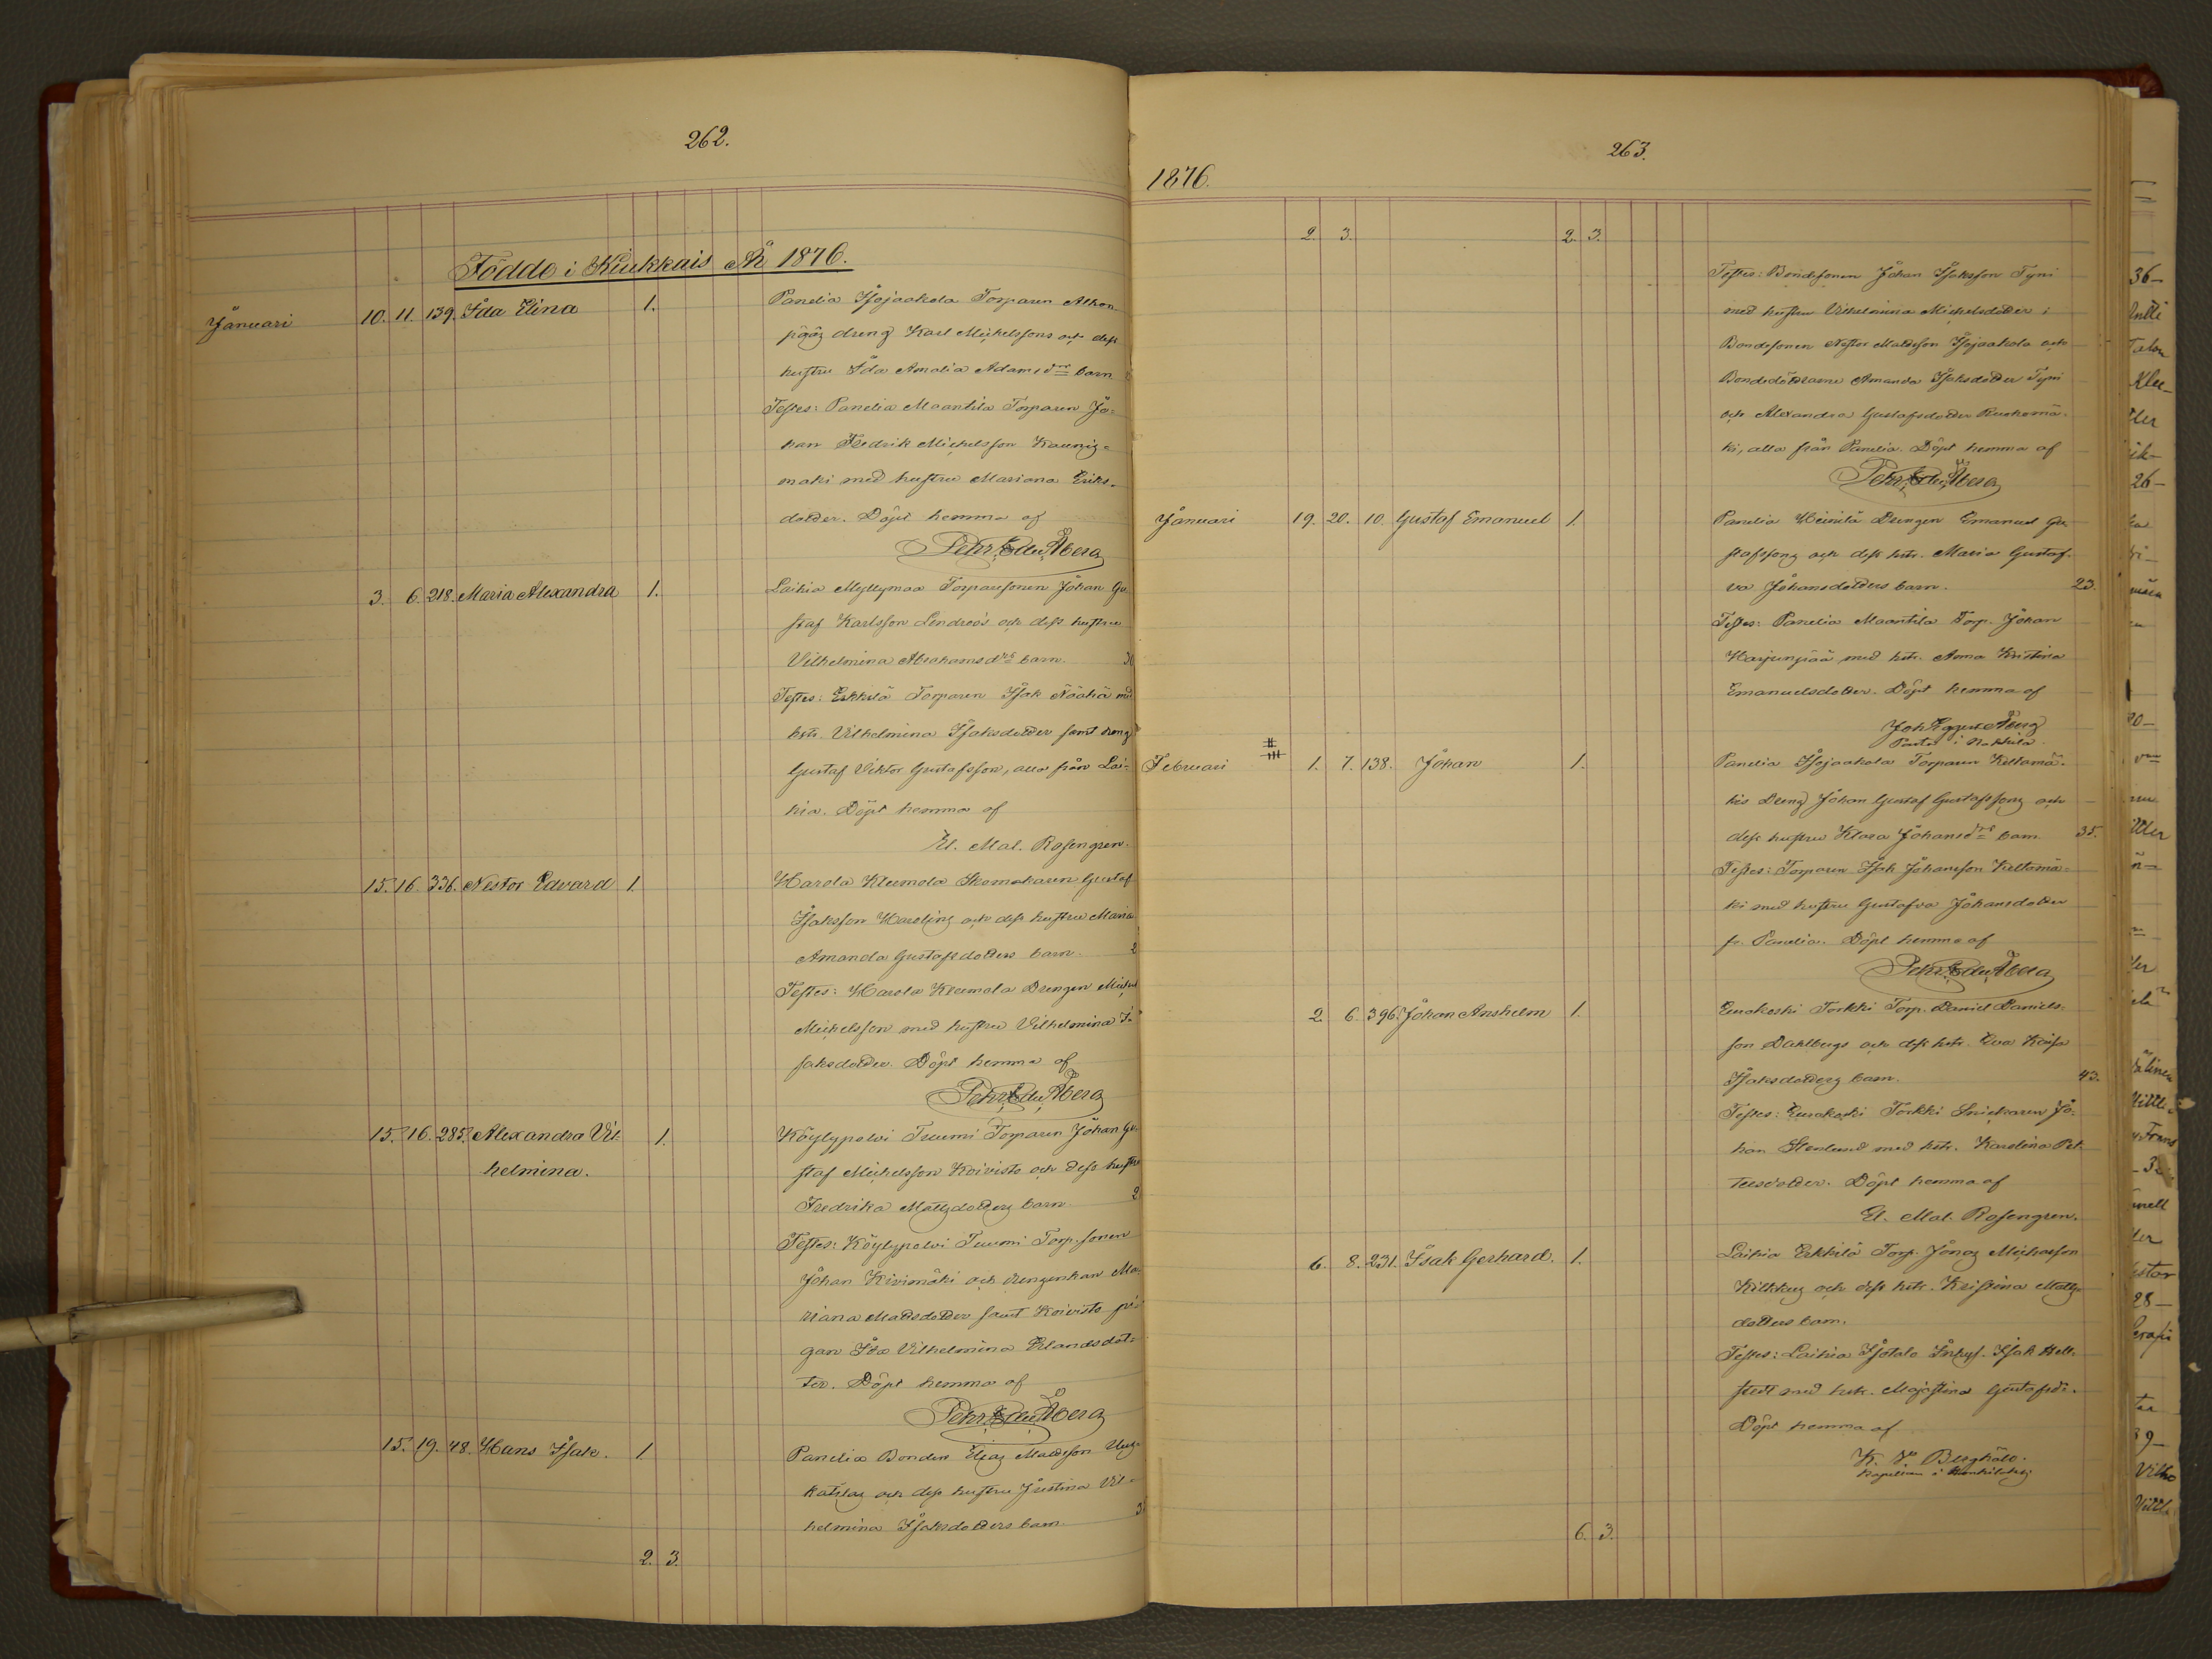 262.
Födde i Kiukkais År 1876.
Januari 10. 11. 139. Ida Elina 1. Panelia Isojaakola Torparen Alhon-
pääs dreng Karl Michelssons och dess
hustru Ida Amalia Adamsdrs barn
Testes: Panelia Maantila Torparen Jo=
han Fredrik Michelsson Kaunis-
maki med hustru Mariana Eriks-
dotter. Döpt hemma af
Pehr Edv. Åberg
3. 6. 218. Maria Alexandra 1. Laihia Myllymaa Torparesonen Johan Gu-
staf Karlsson Lindroos och dess hustru
Vilhelmina Abrahamsdrs barn. 30
Testes: Eskkilä Torparen Isak med
hstr. Vilhelmina Isaksdotter samt dreng
Gustaf Viktor Gustafsson, alla från Lai-
hia. Döpt hemma af
El. Mal. Rosengren.
15. 16. 336. Nestor Edvard 1. Harola Kleemola Skomakaren Gustaf
Isaksson Harling och dess hustru Maria
Amanda Gustafsdotters barn. 2
Testes: Harola Kleemola Drengen Michel
Michelsson med hustru Vilhelmina I-
saksdotter. Döpt hemma af
Pehr Edv. Åberg
15. 16. 285. Alexandra Vil- 1. Köylypolvi Tuomi Torparen Johan Gu-
helmina. staf Michelsson Koivisto och dess hustru
Fredrika Mattsdotters barn. 2
Testes: Köylypolvi Tuomi Torp.sonen
Johan Kivimäki och drengenkan Ma-
riana Mattsdotter samt Koivisto pi-
gan Ida Vilhelmina Erlandsdot-
ter. Döpt hemma af
Pehr Edv. Åberg
15. 19. 48. Hans Isak. 1 Panelia Bonden Elias Mattsson Uus-
kätilas och dess hustru Justina Vil-
helmina Isaksdotters barn. 3
2. 3.
263.
1876.
2. 3. 2. 3.
Testes: Bondesonen Johan Isaksson Tyni
med hustru Vilhelmina Michelsdotter;
Bondesonen Nestor Mattsson Isojaakola och
Bondedöttrarne Amanda Isaksdotter Tyni
och Alexandra Gustafsdotter Ruohomä-
ki, alla från Panelia. Döpt hemma af
Pehr Edv. Åberg
Januari 19. 20. 10. Gustaf Emanuel 1. Panelia Heinilä Drengen Emanuel Gu-
stafssons och dess hstr. Maria Gustaf-
va Johansdotters barn. 23.
Testes: Panelia Maantila Torp. Johan
Harjunpää med hstr. Anna Kristina
Emanuelsdotter. Döpt hemma af
Joh. Åberg
Pastor i Nakkila.
Februari 1. 7. 138. Johan 1. Panelia Isojaakola Torparen Keltamä-
kis Dreng Johan Gustaf Gustafssons och
dess hustru Klara Johansdrs barn. 35.
Testes: Torparen Isak Johansson Keltamä-
ki med hustru Gustafva Johansdotter
fr. Panelia. Döpt hemma af
Pehr Edv. Åberg
2 6 396. Johan Anshelm 1. Eurakoski Torkki Torp. Daniel Daniels-
son Dahlbergs och dess hstr. Eva Kaisa
Isaksdotters barn. 43.
Testes: Eurakoski Torkki Snickaren Jo-
han Stenlund med hstr. Karolina Pet-
tersdotter. Döpt hemma af
El. Mal. Rosengren.
6. 8. 231. Isak Gerhard. 1. Laihia Eskkilä Torp. Jonas Michelsson
Kilkkus och dess hstr. Kristina Matts-
dotters barn.
Testes: Laihia Isotalo Inhys. Isak Hell-
stedt med hstr. Majastina Gustafsdr.
Döpt hemma af
K. V. Bergholo.
Kapellan i
6. 3.